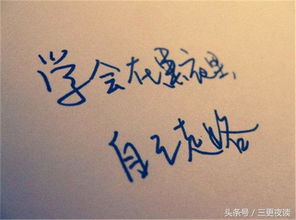 学会在黑夜里，
自己走路
头条号 / 三更夜读